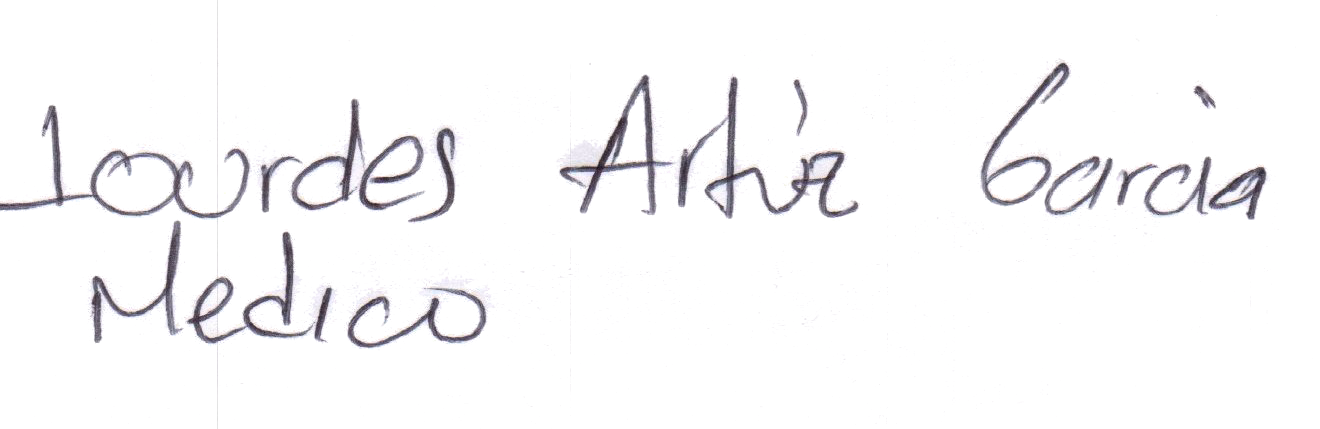 Lourdes Artíz García
Medico